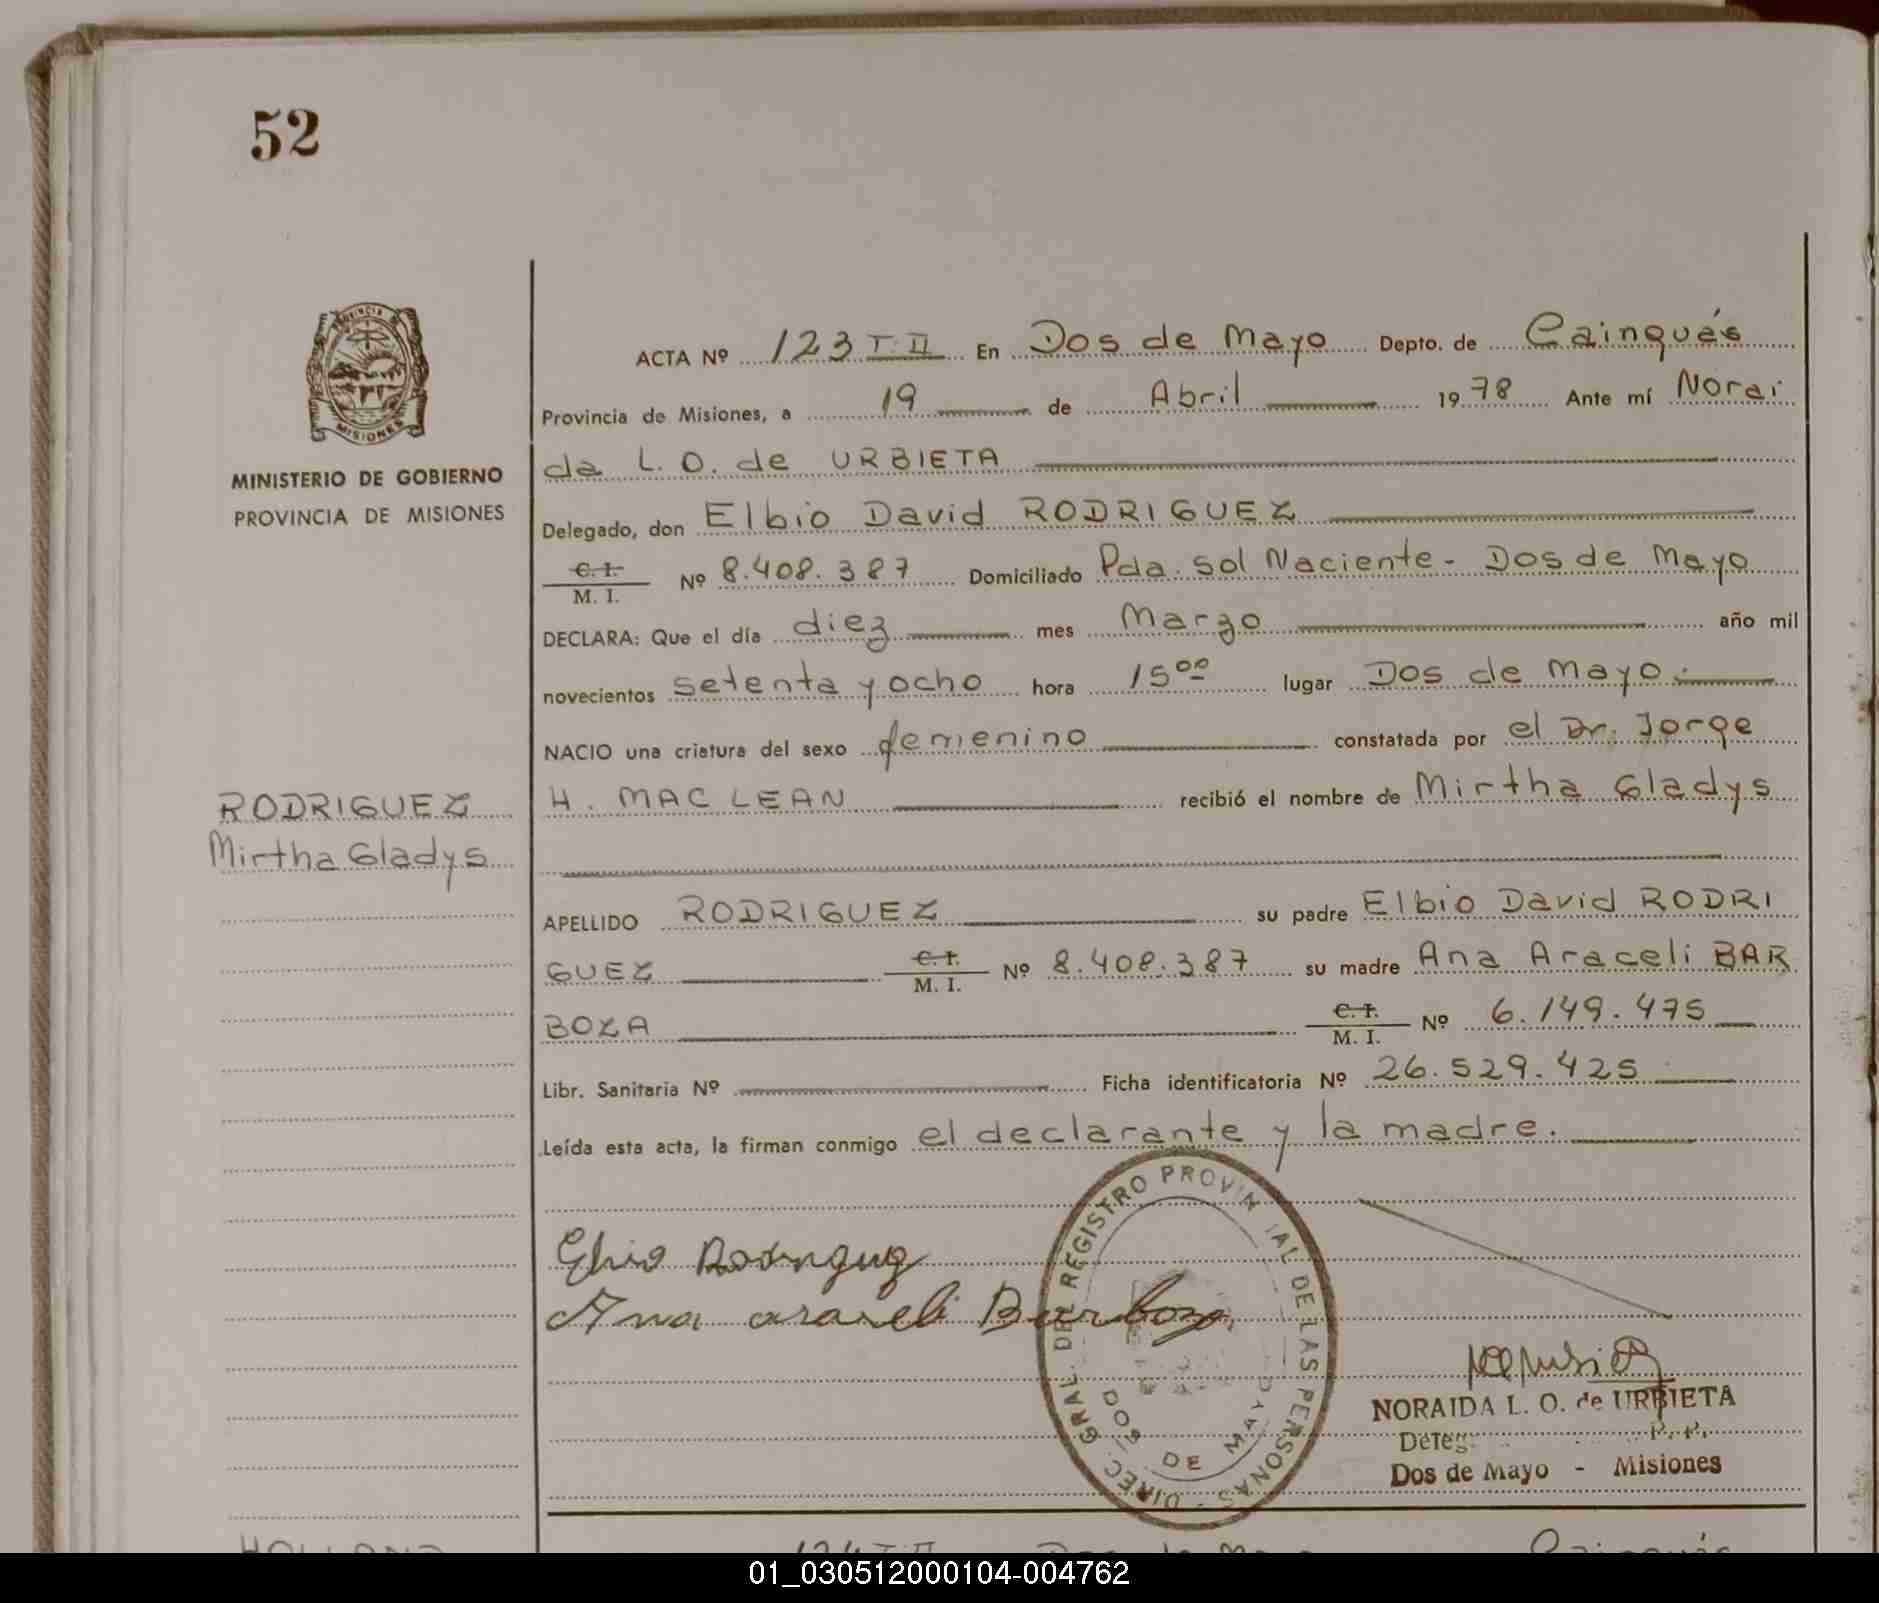 52
PROVINCIA DE
MISIONES
MINISTERIO DE GOBIERNO
PROVINCIA DE MISIONES
RODRIGUEZ
Mirtha Gladys
ACTA Nº 123 T. II En Dos de Mayo Depto. de Cainguás
Provincia de Misiones, a 19 de Abril 1978 Ante mí Norai
da L. O. de URBIETA
Delegado, don Elbio David RODRIGUEZ
C. I.
M. I. Nº 8.408.387 Domiciliado Pda. Sol Naciente - Dos de Mayo
DECLARA: Que el día diez mes Marzo año mil
novecientos setenta y ocho hora 15 00 lugar Dos de Mayo.
NACIO una criatura del sexo femenino constatada por el Dr. Jorge
H. MAC LEAN recibió el nombre de Mirtha Gladys
APELLIDO RODRIGUEZ su padre Elbio David RODRI
GUEZ C. I. M. I. Nº 8.408.387 su madre Ana Araceli BAR
BOZA C. I. M. I. Nº 6.149.475
Libr. Sanitaria Nº Ficha identificatoria Nº 26.529.425
Leída esta acta, la firman conmigo el declarante y la madre.
Elbio Rodriguez
Ana araceli Barboza
DIREC. GRAL. DEL REGISTRO PROVINCIAL DE LAS PERSONAS -
DOS DE MAYO
NORAIDA L. O. de URBIETA
Deleg.
Dos de Mayo - Misiones
01_030512000104-004762